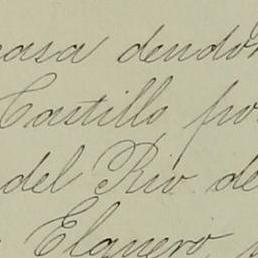 casa dendon
Castillo po
del Rio de
Elguero,